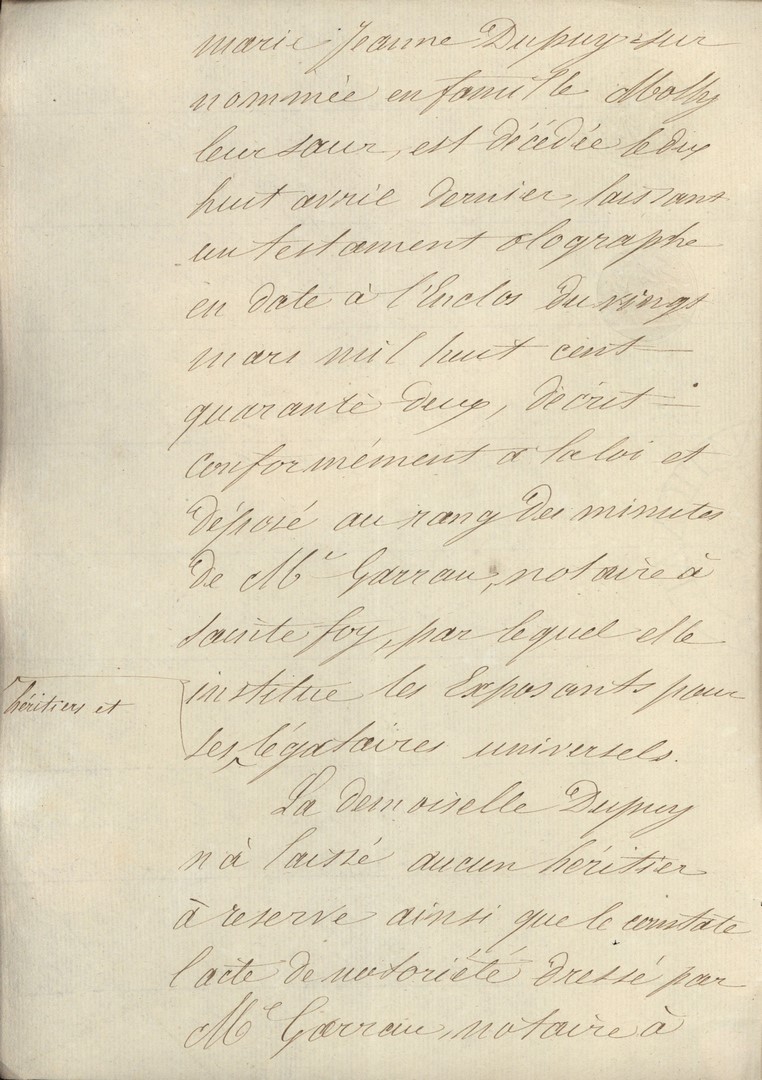 marie Jeanne Dupuy, sur
nommée en famille Molly
leur sœur, est décédée le dix
huit avril dernier, laissant
un testament olographe
en date à l'Enclos du vingt
mars mil huit cent
quarante deux, décrit
conformément à la loi et
déposé au rang des minutes
de Mr Garrau, notaire à
Sainte foy, par lequel elle
institue les Exposants pour
héritiers et
ses légataires universels.
La demoiselle Dupuy
n'à laissé aucun héritier
à reserve ainsi que le constate
l'acte de notoriété dressé par
Me Garrau, notaire à